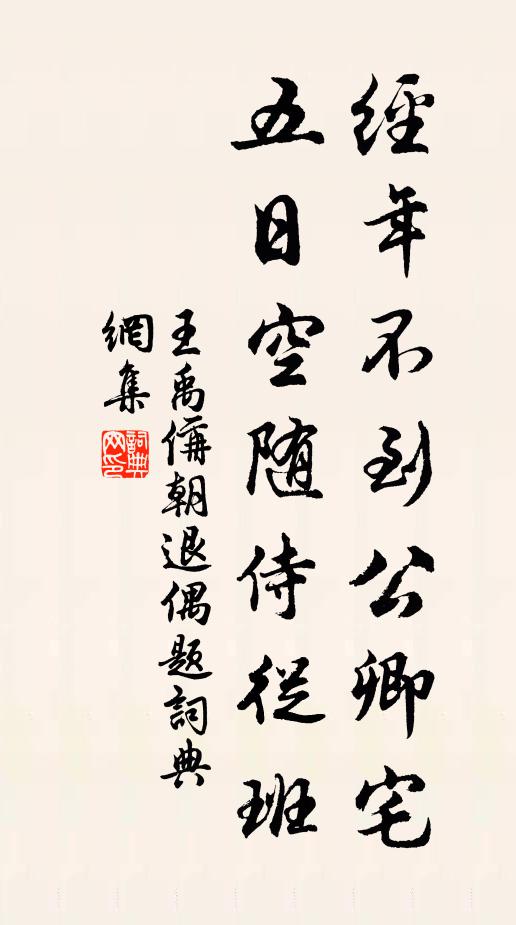 經年不到公卿宅
五日空随侍從班
王禹偁朝退偶題詞典
網集
詞典網印